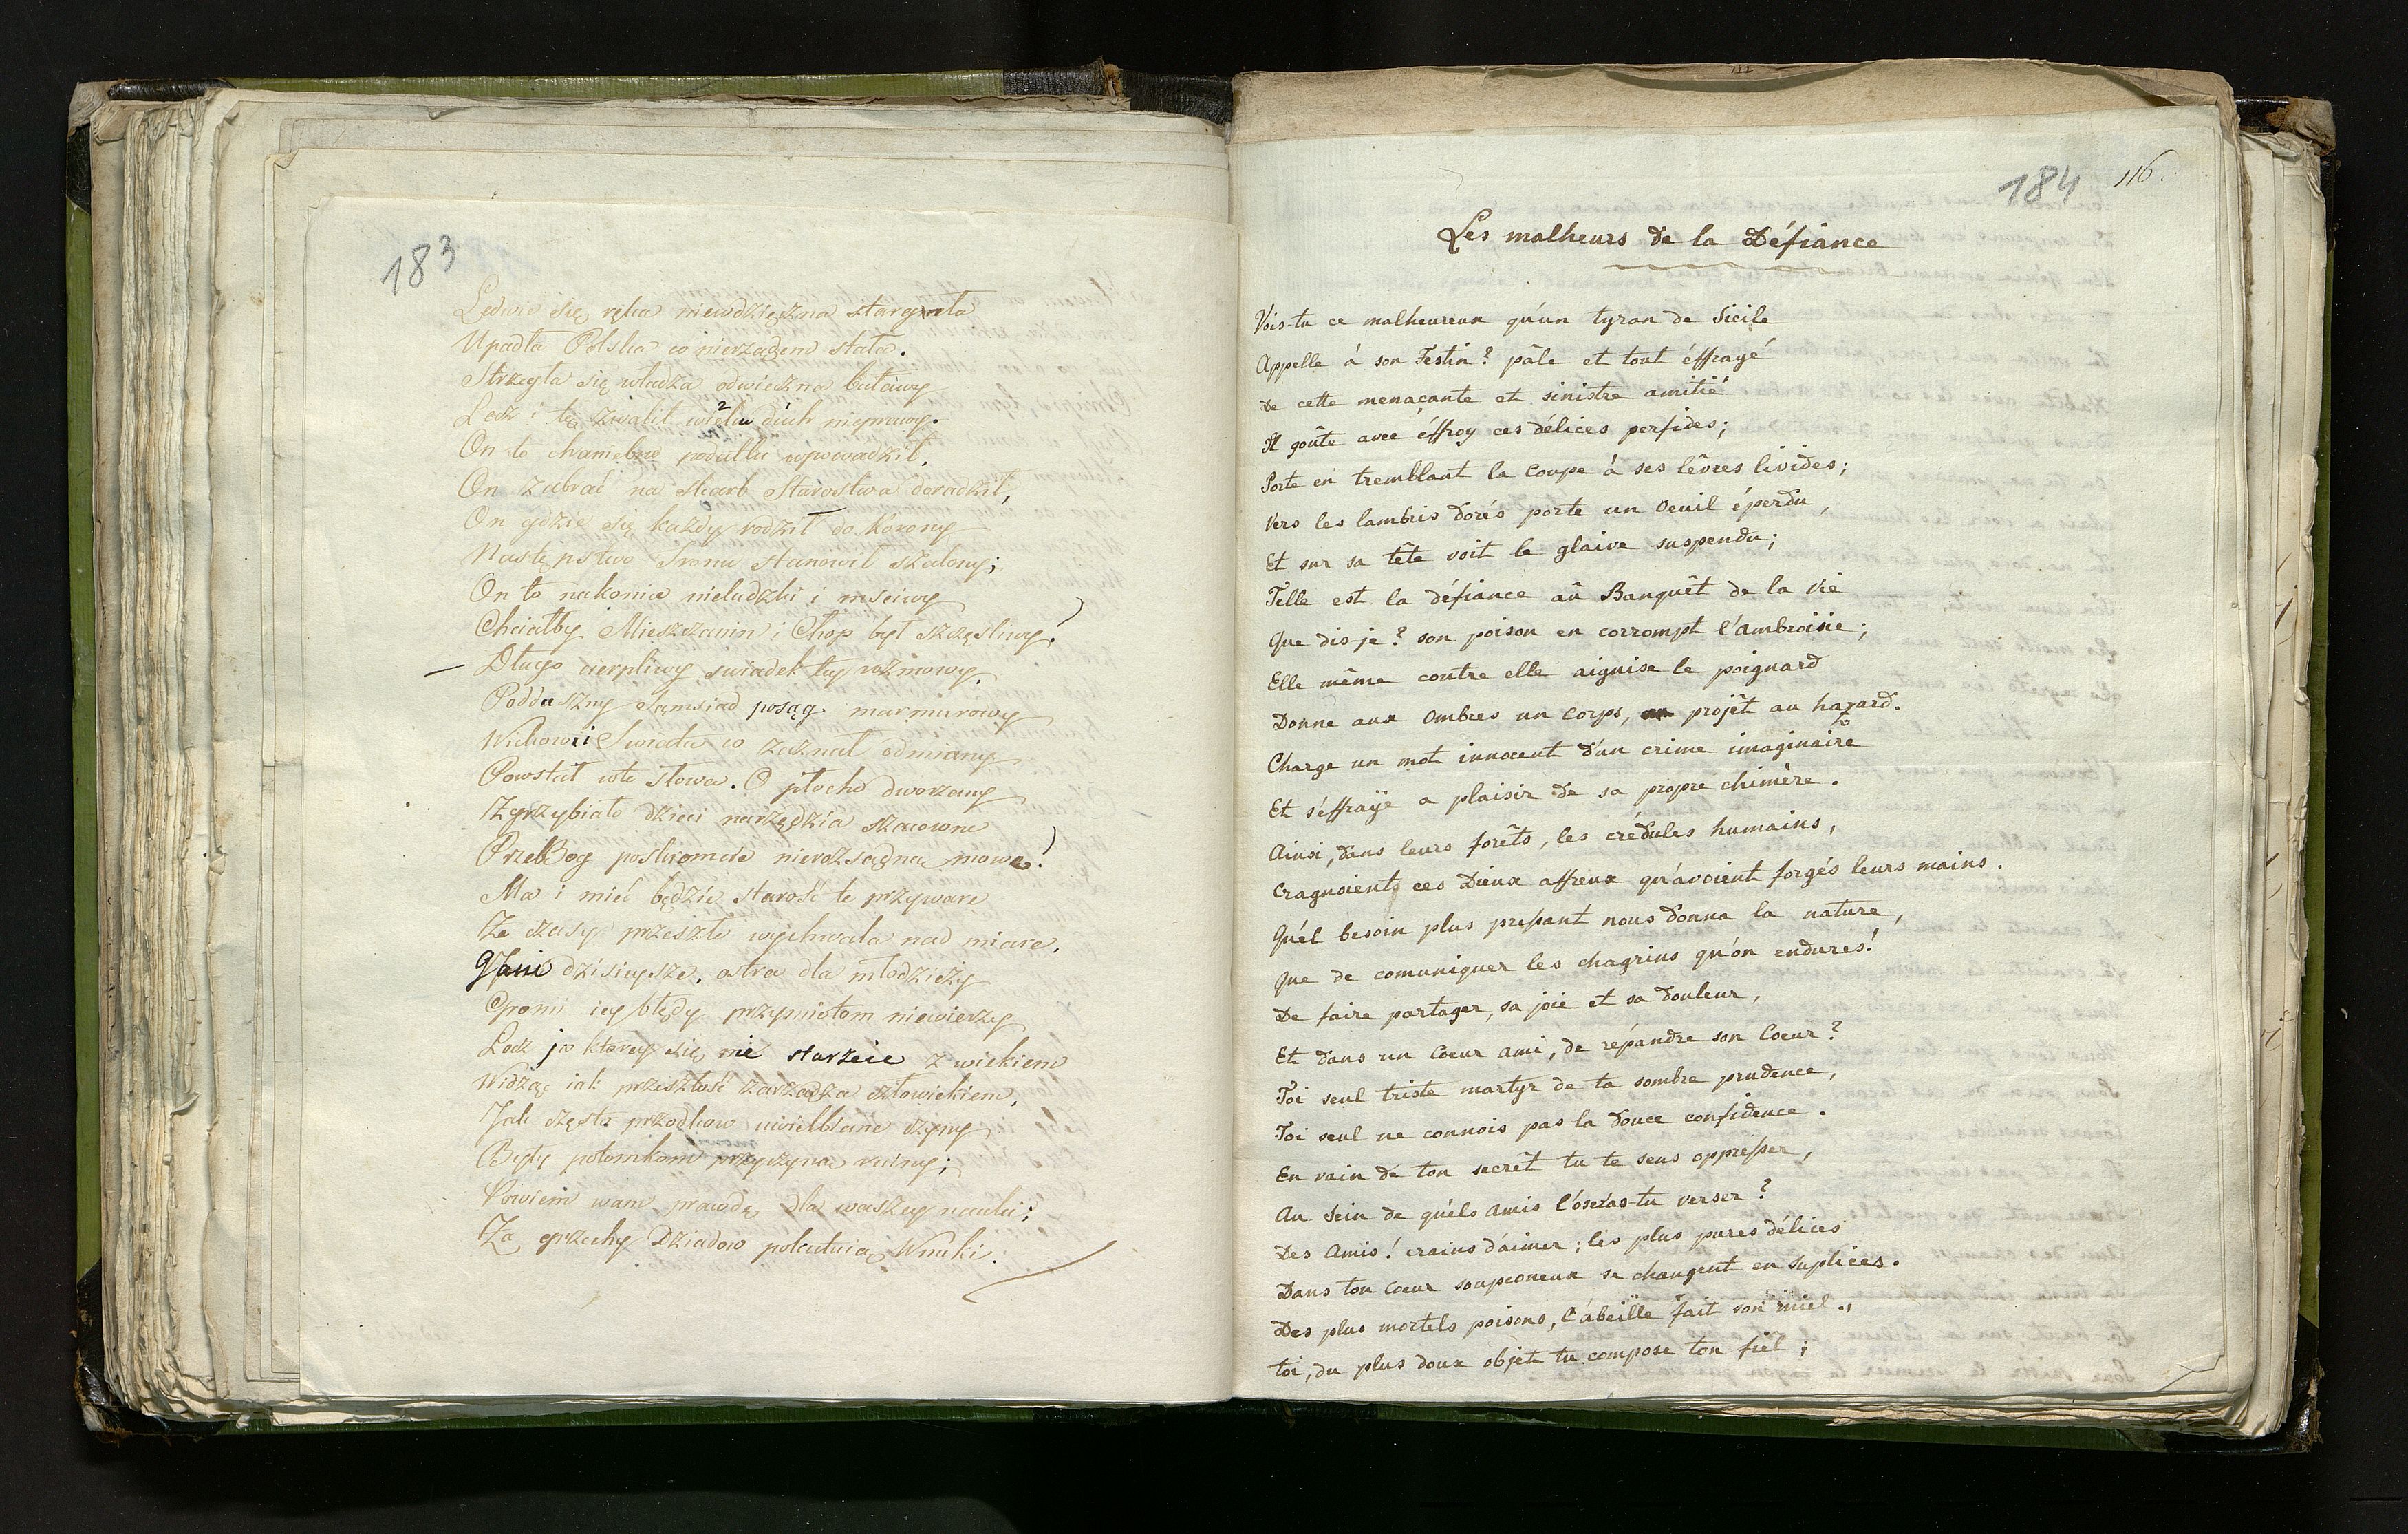 183
Ledwie się ręka niewdzięczna stargnęła
Upadła Polska co nierządem stała.
Strzegła się władza odwieczna buławy
Lecz i tę zwalił wielu dúch nieprawy.
On to chaniebne podatku wprowadził,
On zabrać na skarb Starostwa doradził;
On gdzie się każdy rodził do korony
Następstwo Tronu stanowił szalony;
On to nakoniec nieludzki i msciwy
Chciał by Mieszczanin i Chop był szczęsliwy!
— Długo cierpliwy swiadek tey rozmowy.
Poddaszny Sąmsiad posąg marmurowy
Wiekowi i Swiata co zaznał odmiany
Powstał w te słowa. O płocho dworzany
Zgrzybiało dzieci narzędzia szacowne
Prze Bog poskromcie nierozsądną mowę!
Ma i mieć będzie starość te przyware
Ze czasy przeszłe wychwala nad miare.
Gani dzisieysze, ostra dla młodzieży
Gromi iey błędy przymiotom niewierzy
Lecz ja ktorey się nie starzeie z wiekiem
Widząc iak przeszłość zarządza człowiekiem,
Jak częste przodkow uwielbiane czyny
Były potomkom przyczyną ruiny;
Powiem wam prawdę dla waszey nauki;
Za grzechy Dziadow pokutuią Wnuki.
184 116.
Les malheurs de la Défiance
Vois-tu ce malheureux qu'un tyran de Sicile
Appelle à son Festin? pâle et tout éffrayé
De cette menaçante et sinistre amitié
Il goûte avec éffroy ces délices perfides;
Porte en tremblant la Coupe à ses lêvres livides;
Vers les lambris dorés porte un Oeuil éperdu,
Et sur sa tête voit le glaive suspendu;
Telle est la défiance aû Banquêt de la vie
Que dis-je? son poison en corrompt l'Ambroisie;
Elle même contre elle aiguise le poignard
Donne aux Ombres un Corps, projêt au hazard.
Charge un mot innocent d'un crime imaginaire
Et s'éffraÿe a plaisir de sa propre chimère.
Ainsi, dans leurs forêts, les crédules humains,
Cragnoient ces Dieux affreux qu'avoient forgés leurs mains.
Quél besoin plus pressant nous donna la nature,
Que de comuniquer les chagrins qu'on endures!
De faire partager, sa joie et sa douleur,
Et dans un Coeur ami, de répandre son Coeur?
Toi seul triste martyr de ta sombre prudence,
Toi seul ne connois pas la douce confidence.
En vain de ton secrêt tu te sens oppresser,
Au Sein de quéls amis l'óseras-tu verser?
Des Amis! crains d'aimer; les plus pures délices
Dans ton Coeur soupconeux se changent en suplices.
Des plus mortels poisons, l'ábeille fait son miel.,
toi, du plus doux objet tu compose ton fiel;